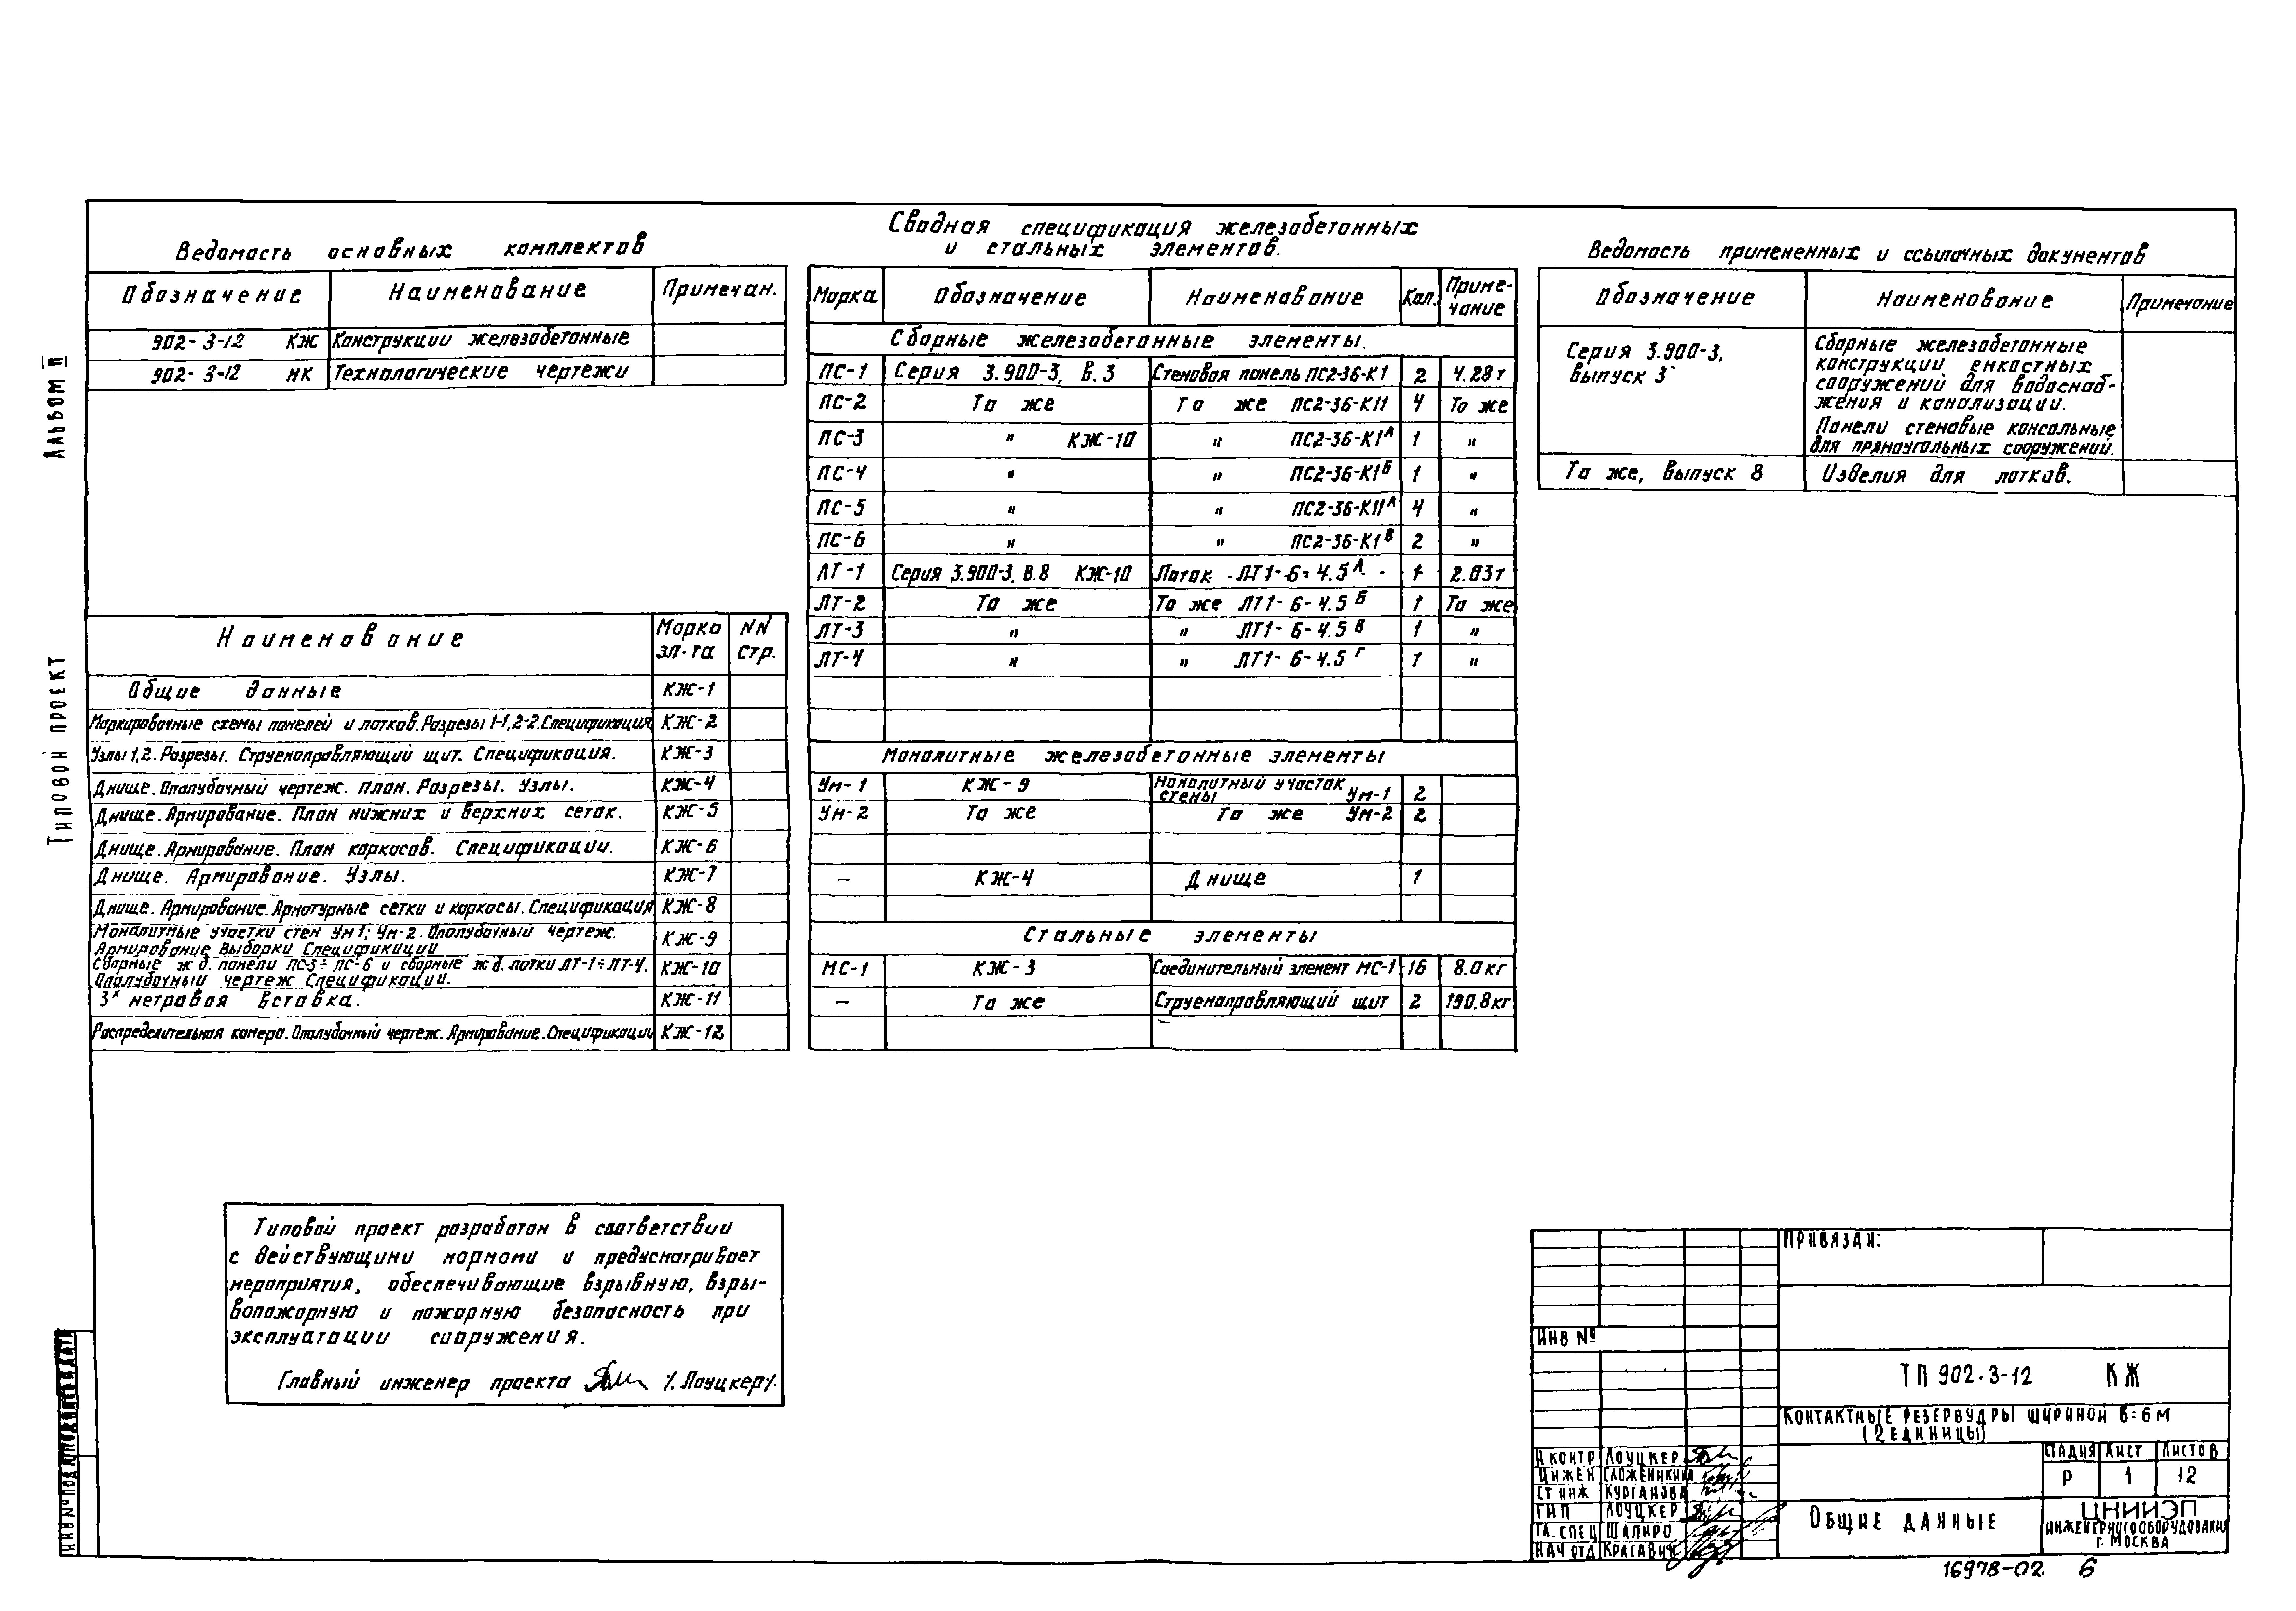 Альбом II
Типовой проект
Ведомость основных комплектов
Обозначение Наименование Примечан.
902-3-12 КЖ Конструкции железобетонные
902-3-12 НК Технологические чертежи
Наименование Марка эл-та NN стр.
Общие данные КЖ-1
Маркировочные схемы панелей и лотков. Разрезы 1-1, 2-2. Спецификация КЖ-2
Узлы 1,2. Разрезы. Струенаправляющий щит. Спецификация. КЖ-3
Днище. Опалубочный чертеж. План. Разрезы. Узлы. КЖ-4
Днище. Армирование. План нижних и верхних сеток. КЖ-5
Днище. Армирование. План каркасов. Спецификации. КЖ-6
Днище. Армирование. Узлы. КЖ-7
Днище. Армирование. Арматурные сетки и каркасы. Спецификация КЖ-8
Монолитные участки стен Ум 1; Ум-2. Опалубочный чертеж.
Армирование Выборки Спецификации КЖ-9
Сборные ж.б. панели ПС-3÷ПС-6 и сборные ж.б. лотки ЛТ-1÷ЛТ-4.
Опалубочный чертеж Спецификации. КЖ-10
3х метровая вставка. КЖ-11
Распределительная камера. Опалубочный чертеж. Армирование. Спецификации КЖ-12
Сводная спецификация железобетонных
и стальных элементов.
Марка Обозначение Наименование Кол. Приме-
чание
Сборные железобетонные элементы.
ПС-1 Серия 3.900-3, В.3 Стеновая панель ПС2-36-К1 2 4.28т
ПС-2 То же То же ПС2-36-К11 4 То же
ПС-3 " КЖ-10 " ПС2-36-К1А 1 "
ПС-4 " " ПС2-36-К1Б 1 "
ПС-5 " " ПС2-36-К11А 4 "
ПС-6 " " ПС2-36-К1В 2 "
ЛТ-1 Серия 3.900-3, В.8 КЖ-10 Лоток ЛТ1-6-4.5А 1 2.03т
ЛТ-2 То же То же ЛТ1-6-4.5Б 1 То же
ЛТ-3 " " ЛТ1-6-4.5В 1 "
ЛТ-4 " " ЛТ1-6-4.5Г 1 "
Монолитные железобетонные элементы
Ум-1 КЖ-9 Монолитный участок
стены Ум-1 2
Ум-2 То же То же Ум-2 2
— КЖ-4 Днище 1
Стальные элементы
МС-1 КЖ-3 Соединительный элемент МС-1 16 8.0кг
— То же Струенаправляющий щит 2 190.8кг
Ведомость примененных и ссылочных документов
Обозначение Наименование Примечание
Серия 3.900-3,
выпуск 3
Сборные железобетонные
конструкции емкостных
сооружений для водоснаб-
жения и канализации.
Панели стеновые консольные
для прямоугольных сооружений.
То же, выпуск 8 Изделия для лотков.
Типовой проект разработан в соответствии
с действующими нормами и предусматривает
мероприятия, обеспечивающие взрывную, взры-
вопожарную и пожарную безопасность при
эксплуатации сооружения.
Главный инженер проекта /Лоуцкер/.
Привязан:
Инв №
ТП 902-3-12 КЖ
Контактные резервуары шириной В=6м
(2 единицы)
Стадия Лист Листов
Р 1 12
Н контр Лоуцкер
Инжен Сложеникина
Ст инж Курганова
ГИП Лоуцкер
Гл. спец Шапиро
Нач отд Красавин
Общие данные
ЦНИИЭП
инженерного оборудования
г. Москва
16978-02 6